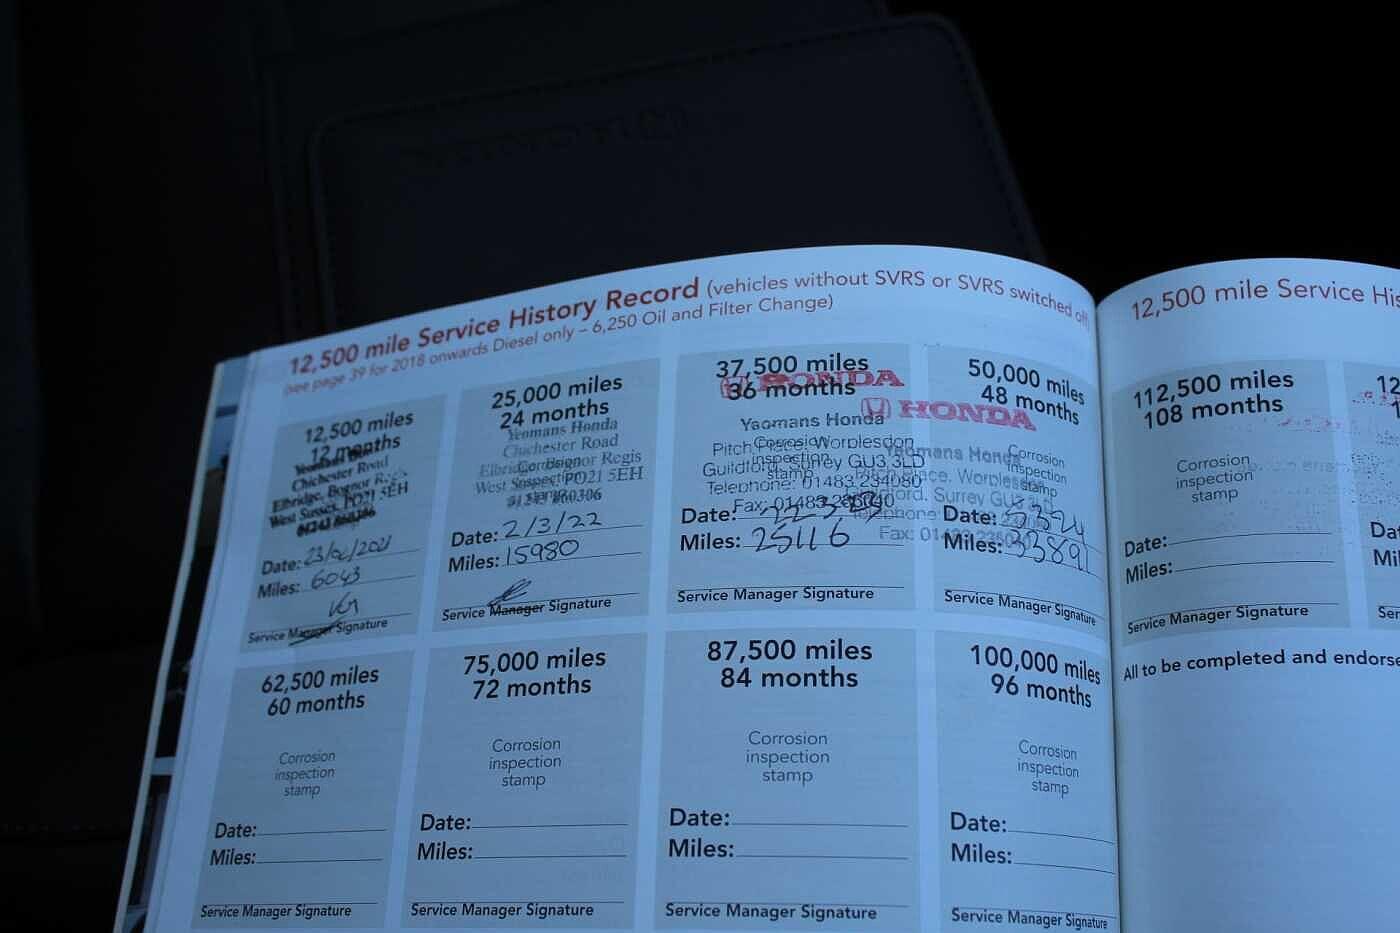 12,500 mile Service History Record (vehicles without SVRS or SVRS switched off)
(see page 39 for 2018 onwards Diesel only – 6,250 Oil and Filter Change)
12,500 miles
12 months
Chichester Road
Elbridge, Bognor Regis
West Sussex, PO21 5EH
Date: 23/02/2021
Miles: 6043
Service Manager Signature
25,000 miles
24 months
Yeomans Honda
Chichester Road
Elbridge, Bognor Regis
West Sussex, PO21 5EH
Date: 2/3/22
Miles: 15980
Service Manager Signature
37,500 miles
36 months
HONDA
Yeomans Honda
Pitch Place, Worplesdon
Guildford, Surrey GU3 3LD
Telephone: 01483 234080
Corrosion
inspection
stamp
Date: 22.3.23
Miles: 25116
Service Manager Signature
50,000 miles
48 months
HONDA
Yeomans Honda
Corrosion
inspection
stamp
Date:
Miles: 33891
Service Manager Signature
62,500 miles
60 months
Corrosion
inspection
stamp
Date:
Miles:
Service Manager Signature
75,000 miles
72 months
Corrosion
inspection
stamp
Date:
Miles:
Service Manager Signature
87,500 miles
84 months
Corrosion
inspection
stamp
Date:
Miles:
Service Manager Signature
100,000 miles
96 months
Corrosion
inspection
stamp
Date:
Miles:
Service Manager Signature
12,500 mile Service His
112,500 miles
108 months
Corrosion
inspection
stamp
Date:
Miles:
Service Manager Signature
12
1
Da
Mil
Ser
All to be completed and endorse